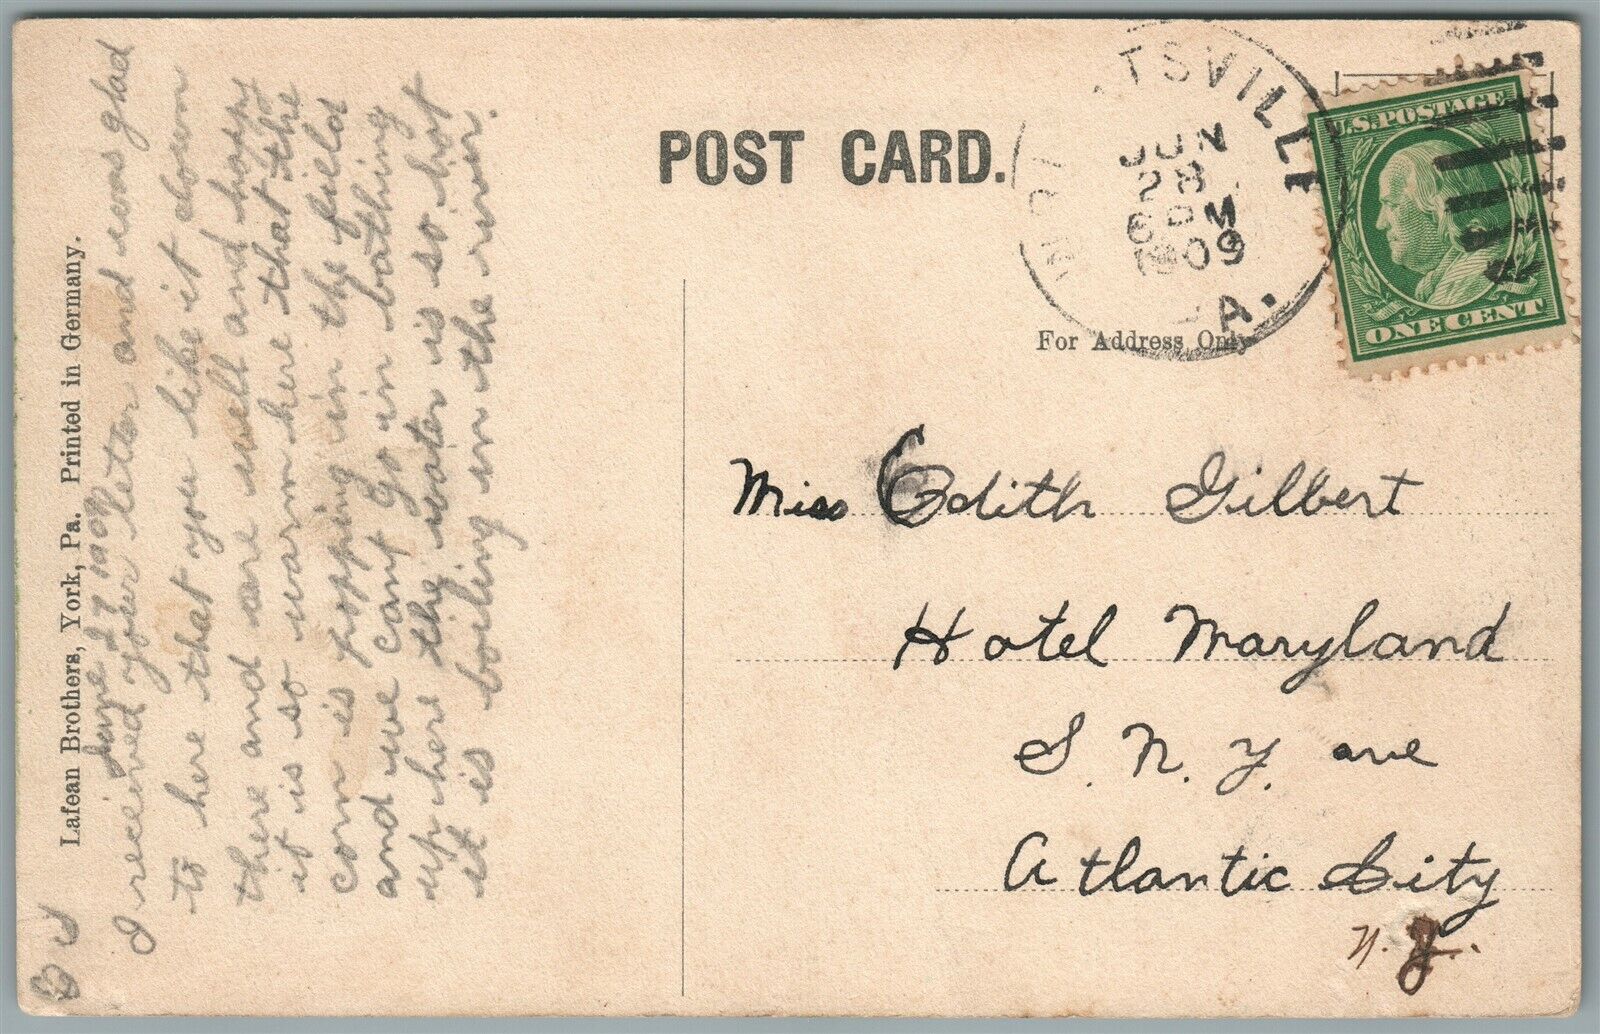 POST CARD.
TSVILLE
JUN
28
6 PM
1909
A.
U.S. POSTAGE
ONE CENT
For Address Only
Miss Edith Gilbert
Hotel Maryland
S. N. Y. ave
Atlantic City
N. J.
Lafean Brothers, York, Pa. Printed in Germany.
June 27 1909
I received your letter and was glad
to here that you like it down
there and are well and happy
it is so warm here that the
corn is popping in the field
and we cant go in bathing
up here the water is so hot
it is boiling in the river.